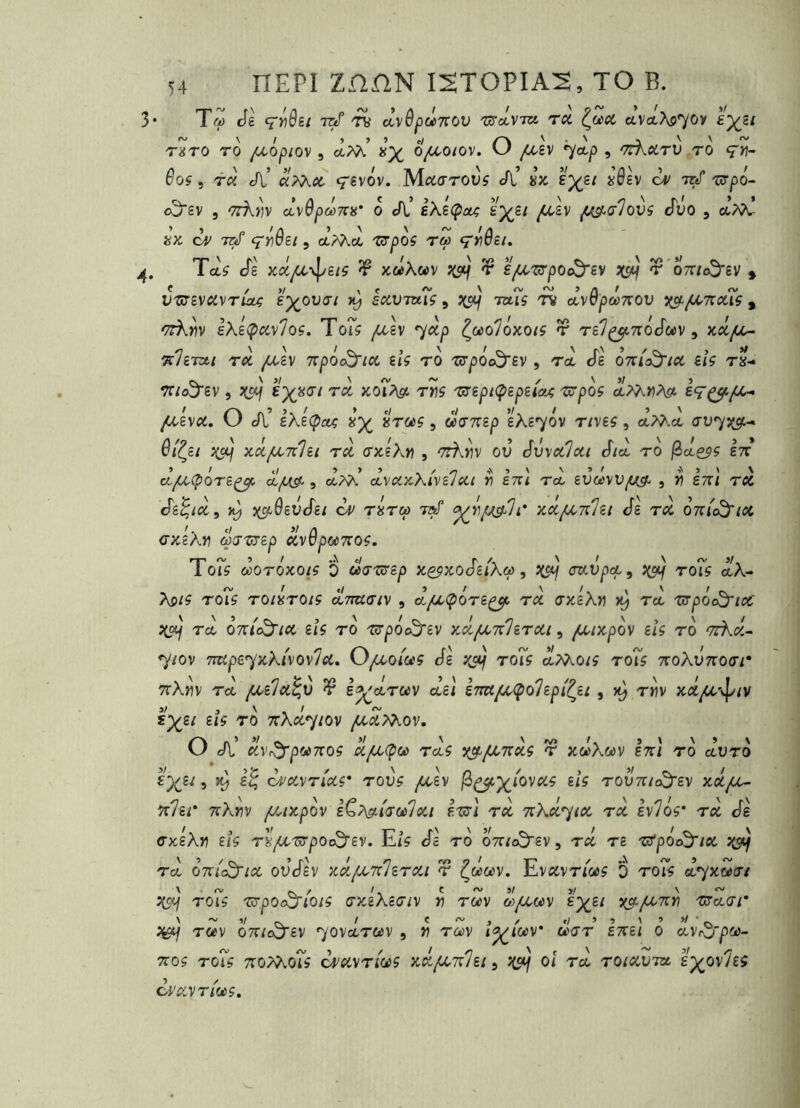 54 ΠΕΡΙ ΖΩΩΝ ΙΣΤΟΡΙΑΣ, ΤΟ Β.
3. Τῷ δὲ στήθει τῷ τοῦ ἀνθρώπου πάντα τὰ ζῶα ἀνάλογον ἔχει
τοῦτο τὸ μόριον, ἀλλ' οὐχ ὅμοιον. Ο μὲν γὰρ, πλατὺ τὸ στῆ-
θος, τὰ δ' ἄλλα στενόν. Μαστοὺς δ' οὐκ ἔχει οὐθὲν ἐν τῷ πρό-
σθεν, πλὴν ἀνθρώπου· ὁ δ' ἐλέφας ἔχει μὲν μαστοὺς δύο, ἀλλ'
οὐκ ἐν τῷ στήθει, ἀλλὰ πρὸς τῷ στήθει.
4. Τὰς δὲ κάμψεις τῶν κώλων καὶ τῶν ἔμπροσθεν καὶ τῶν ὄπισθεν,
ὑπεναντίας ἔχουσι καὶ ἑαυταῖς, καὶ ταῖς τοῦ ἀνθρώπου καμπαῖς,
πλὴν ἐλέφαντος. Τοῖς μὲν γὰρ ζωοτόκοις τῶν τετραπόδων, κάμ-
πτεται τὰ μὲν πρόσθια εἰς τὸ πρόσθεν, τὰ δὲ ὀπίσθια εἰς τοὔ-
πισθεν, καὶ ἔχουσι τὰ κοῖλα τῆς περιφερείας πρὸς ἄλληλα ἐστραμ-
μένα. Ο δ' ἐλέφας οὐχ οὕτως, ὥσπερ ἔλεγόν τινες, ἀλλὰ συγκα-
θίζει καὶ κάμπτει τὰ σκέλη, πλὴν οὐ δύναται διὰ τὸ βάρος ἐπ'
ἀμφότερα ἅμα, ἀλλ' ἀνακλίνεται ἢ ἐπὶ τὰ εὐώνυμα, ἢ ἐπὶ τὰ
δεξιὰ, καὶ καθεύδει ἐν τούτῳ τῷ σχήματι· κάμπτει δὲ τὰ ὀπίσθια
σκέλη ὥσπερ ἄνθρωπος.
Τοῖς ὠοτόκοις δὲ ὥσπερ κροκοδείλῳ, καὶ σαύρα, καὶ τοῖς ἄλ-
λοις τοῖς τοιούτοις ἅπασιν, ἀμφότερα τὰ σκέλη καὶ τὰ πρόσθια
καὶ τὰ ὀπίσθια εἰς τὸ πρόσθεν κάμπτεται, μικρὸν εἰς τὸ πλά-
γιον παρεγκλίνοντα. Ομοίως δὲ καὶ τοῖς ἄλλοις τοῖς πολύποσι·
πλὴν τὰ μεταξὺ τῶν ἐσχάτων ἀεὶ ἐπαμφοτερίζει, καὶ τὴν κάμψιν
ἔχει εἰς τὸ πλάγιον μᾶλλον.
Ο δ' ἄνθρωπος ἄμφω τὰς καμπὰς τῶν κώλων ἐπὶ τὸ αὐτὸ
ἔχει, καὶ ἐξ ἐναντίας· τοὺς μὲν βραχίονας εἰς τοὔπισθεν κάμ-
πτει· πλὴν μικρὸν ἐβλαίσωται ἐπὶ τὰ πλάγια τὰ ἐντός· τὰ δὲ
σκέλη εἰς τοὔμπροσθεν. Εἰς δὲ τὸ ὄπισθεν, τὰ τε πρόσθια καὶ
τὰ ὀπίσθια οὐδὲν κάμπτεται τῶν ζώων. Εναντίως δὲ τοῖς ἀγκῶσι
καὶ τοῖς προσθίοις σκέλεσιν ἡ τῶν ὤμων ἔχει καμπὴ πᾶσι·
καὶ τῶν ὄπισθεν γονάτων, ἡ τῶν ἰσχίων· ὥστ' ἐπεὶ ὁ ἄνθρω-
πος τοῖς πολλοῖς ἐναντίως κάμπτει, καὶ οἱ τὰ τοιαῦτα ἔχοντες
ἐναντίως.